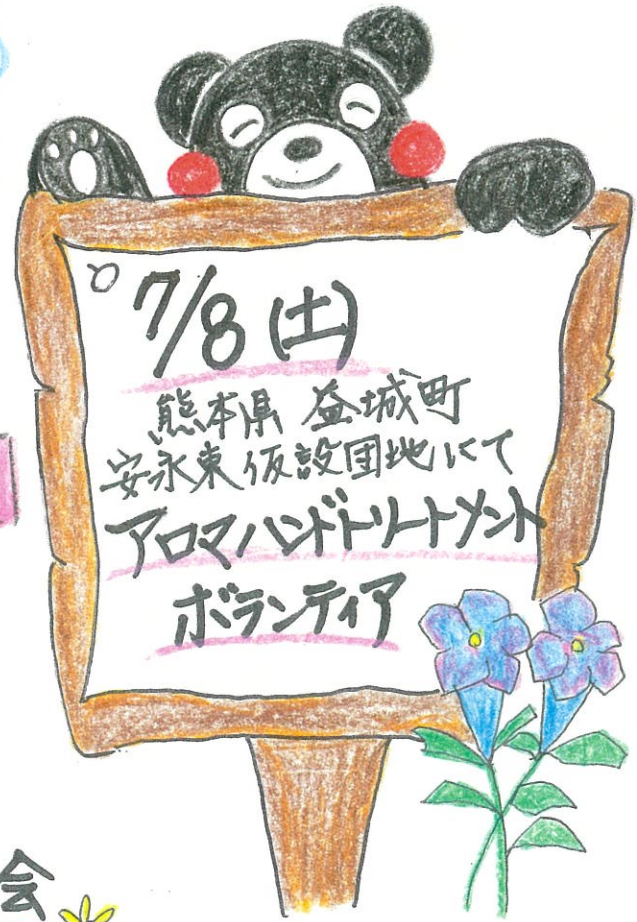 7/8(土)
熊本県 益城町
安永東仮設団地にて
アロマハンドトリートメント
ボランティア
会